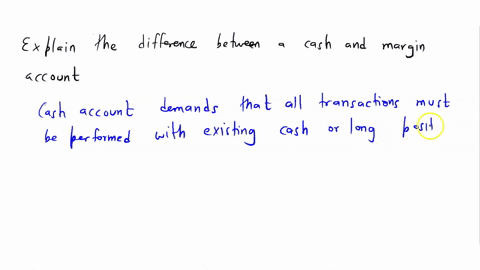 Explain the difference between a cash and margin
account
Cash account demands that all transactions must
be performed with existing cash or long posit